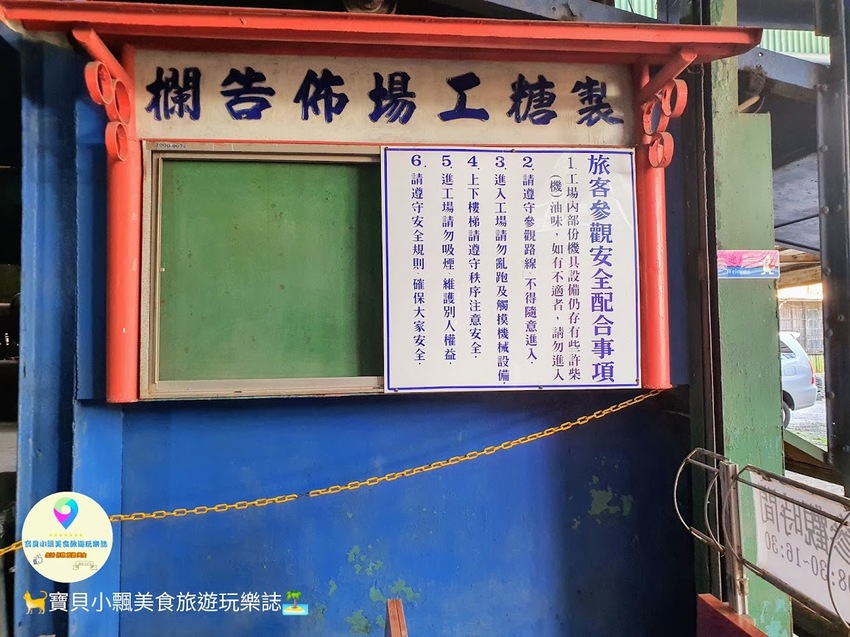 製糖工場佈告欄
旅客參觀安全配合事項
1.工場內部份機具設備仍存有些許柴
(機)油味，如有不適者，請勿進入
2.請遵守參觀路線.不得隨意進入.
3.進入工場請勿亂跑及觸摸機械設備.
4.上下樓梯請遵守秩序注意安全.
5.進工場請勿吸煙.維護別人權益.
6.請遵守安全規則.確保大家安全.
Welcome
參觀時間
08:30-16:30
寶貝小飄美食旅遊玩樂誌
寶貝小飄美食旅遊玩樂誌